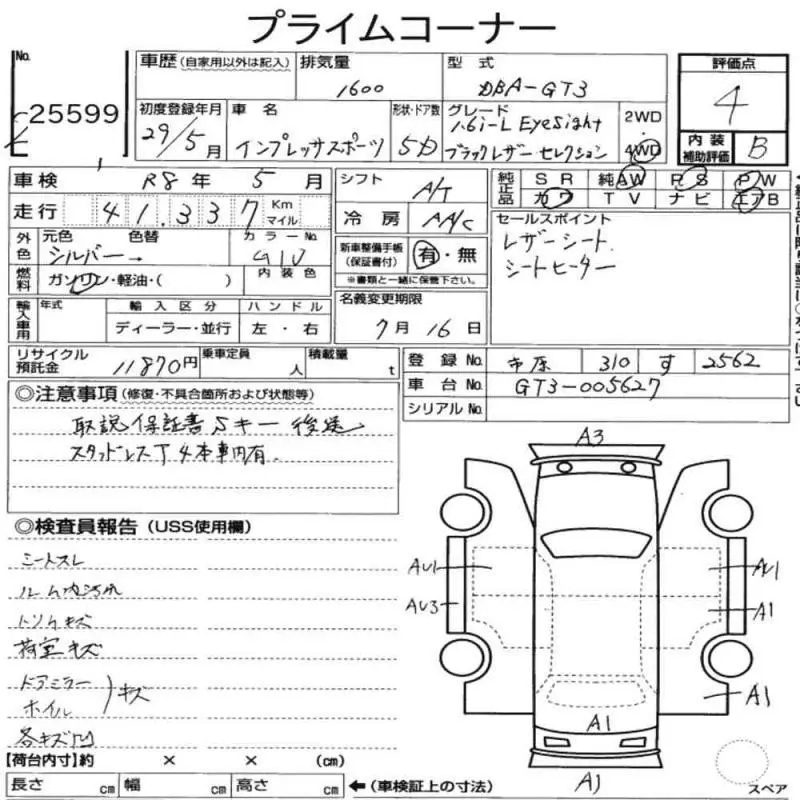 プライムコーナー
No.
25599
車歴 (自家用以外は記入)
排気量
1600
型式
DBA-GT3
評価点
4
初度登録年月
29年5月
車名
インプレッサスポーツ
形状・ドア数
5D
グレード
1.6i-L EyeSight
ブラックレザーセレクション
2WD
4WD
内装
補助評価
B
車検
R8年 5月
走行
41,337
Km
マイル
シフト
A/T
冷房
AA/C
純正品
SR 純AW PS PW
カワ TV ナビ エアB
外色
元色
色替
シルバー→
カラーNo.
G1U
燃料
ガソリン・軽油・( )
内装色
新車整備手帳
(保証書付)
有・無
※書類と一緒に保管下さい。
セールスポイント
レザーシート.
シートヒーター
輸入車用
年式
輸入区分
ハンドル
ディーラー・並行
左・右
名義変更期限
7月16日
リサイクル
預託金
11870円
乗車定員
人
積載量
t
登録No.
市原 310 す 2562
車台No.
GT3-005627
シリアルNo.
◎注意事項 (修復・不具合箇所および状態等)
取説 保証書 Sキー 後送
スタッドレスT 4本車内有.
◎検査員報告 (USS使用欄)
シートスレ
ルーム内汚れ
トリムキズ
荷室キズ
ドアミラー
ホイル
キズ
各キズ凹
A3
AU1
AU1
AU3
A1
A1
A1
A1
【荷台内寸】約 × × (cm)
長さ cm 幅 cm 高さ cm ←(車検証上の寸法)
スペア